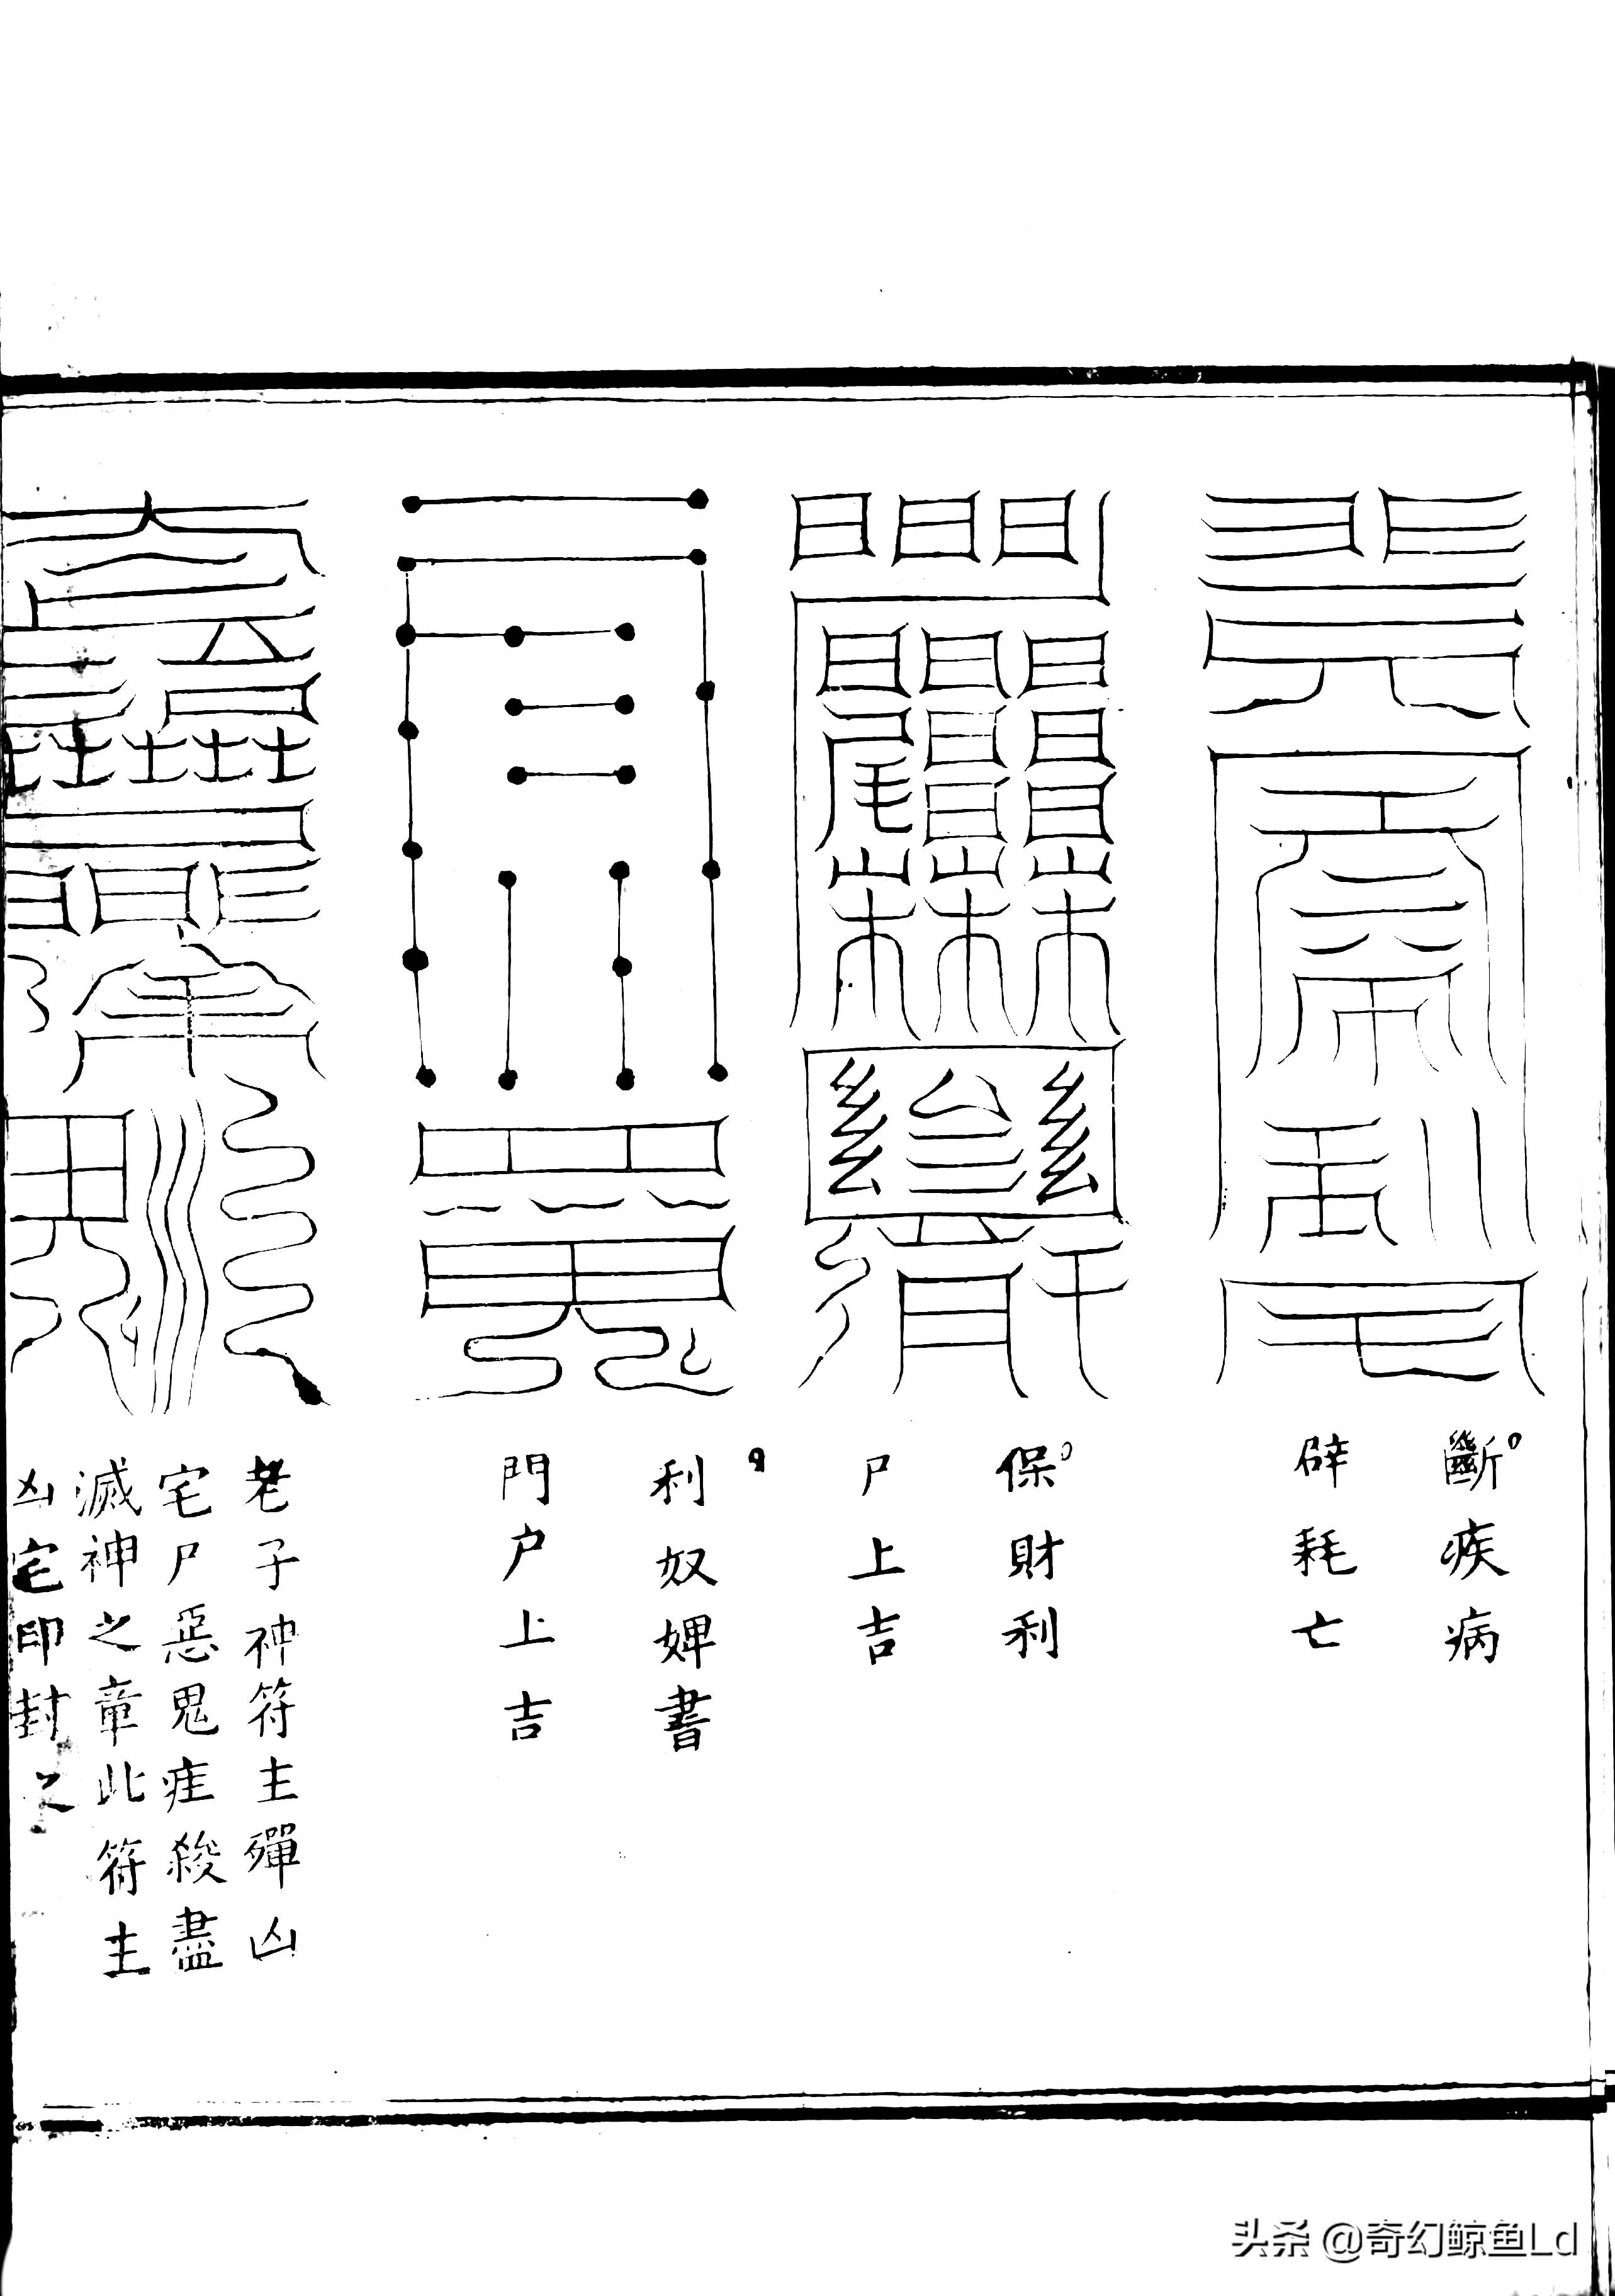 斷疾病
辟耗亡
保財利
尸上吉
利奴婢書
門户上吉
老子神符主殫凶
宅尸惡鬼疰殺盡
滅神之章此符主
凶宅印封之
头条 @奇幻鲸鱼Ld